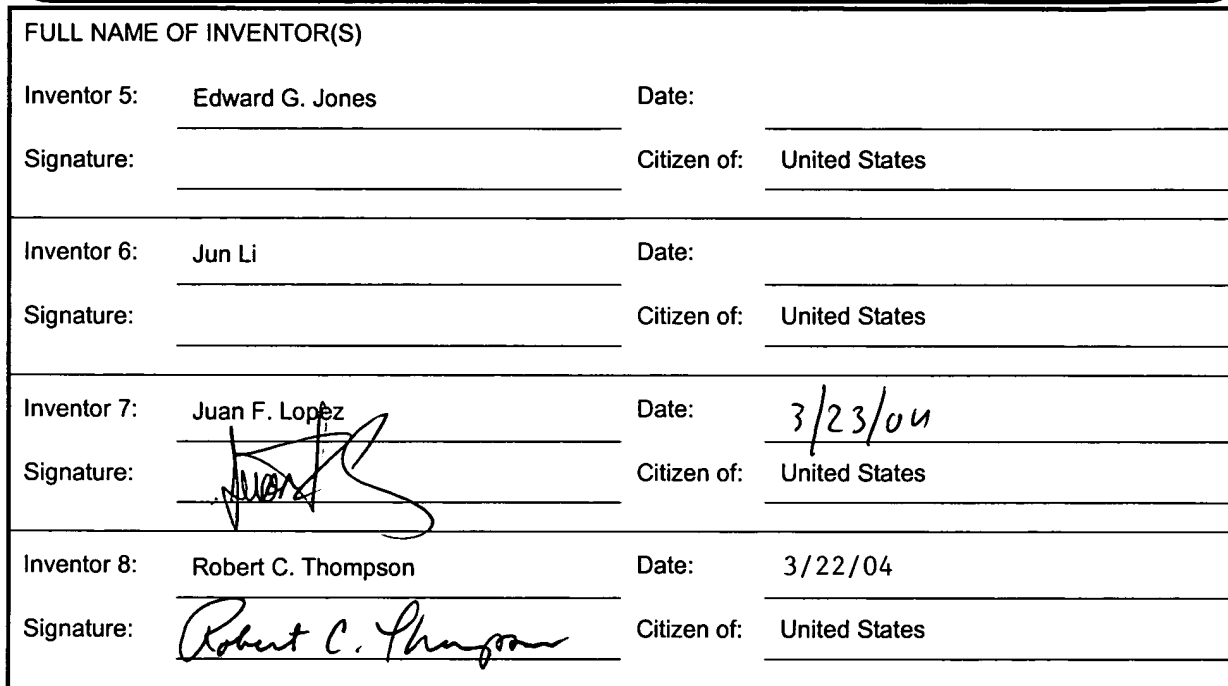 FULL NAME OF INVENTOR(S)
Inventor 5: Edward G. Jones Date:
Signature: Citizen of: United States
Inventor 6: Jun Li Date:
Signature: Citizen of: United States
Inventor 7: Juan F. Lopez Date: 3/23/04
Signature: Juan Citizen of: United States
Inventor 8: Robert C. Thompson Date: 3/22/04
Signature: Robert C. Thompson Citizen of: United States